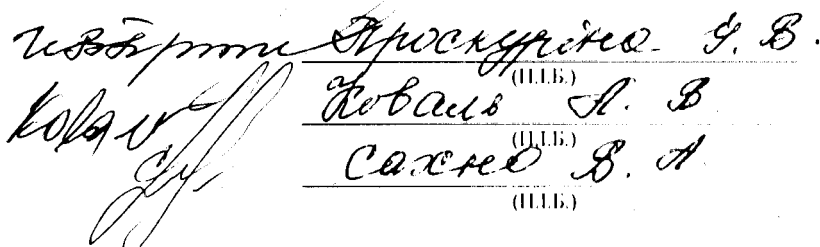 Проскуріна І. В.
(П.І.Б.)
Коваль Л. В
(П.І.Б.)
Сахно В. А
(П.І.Б.)